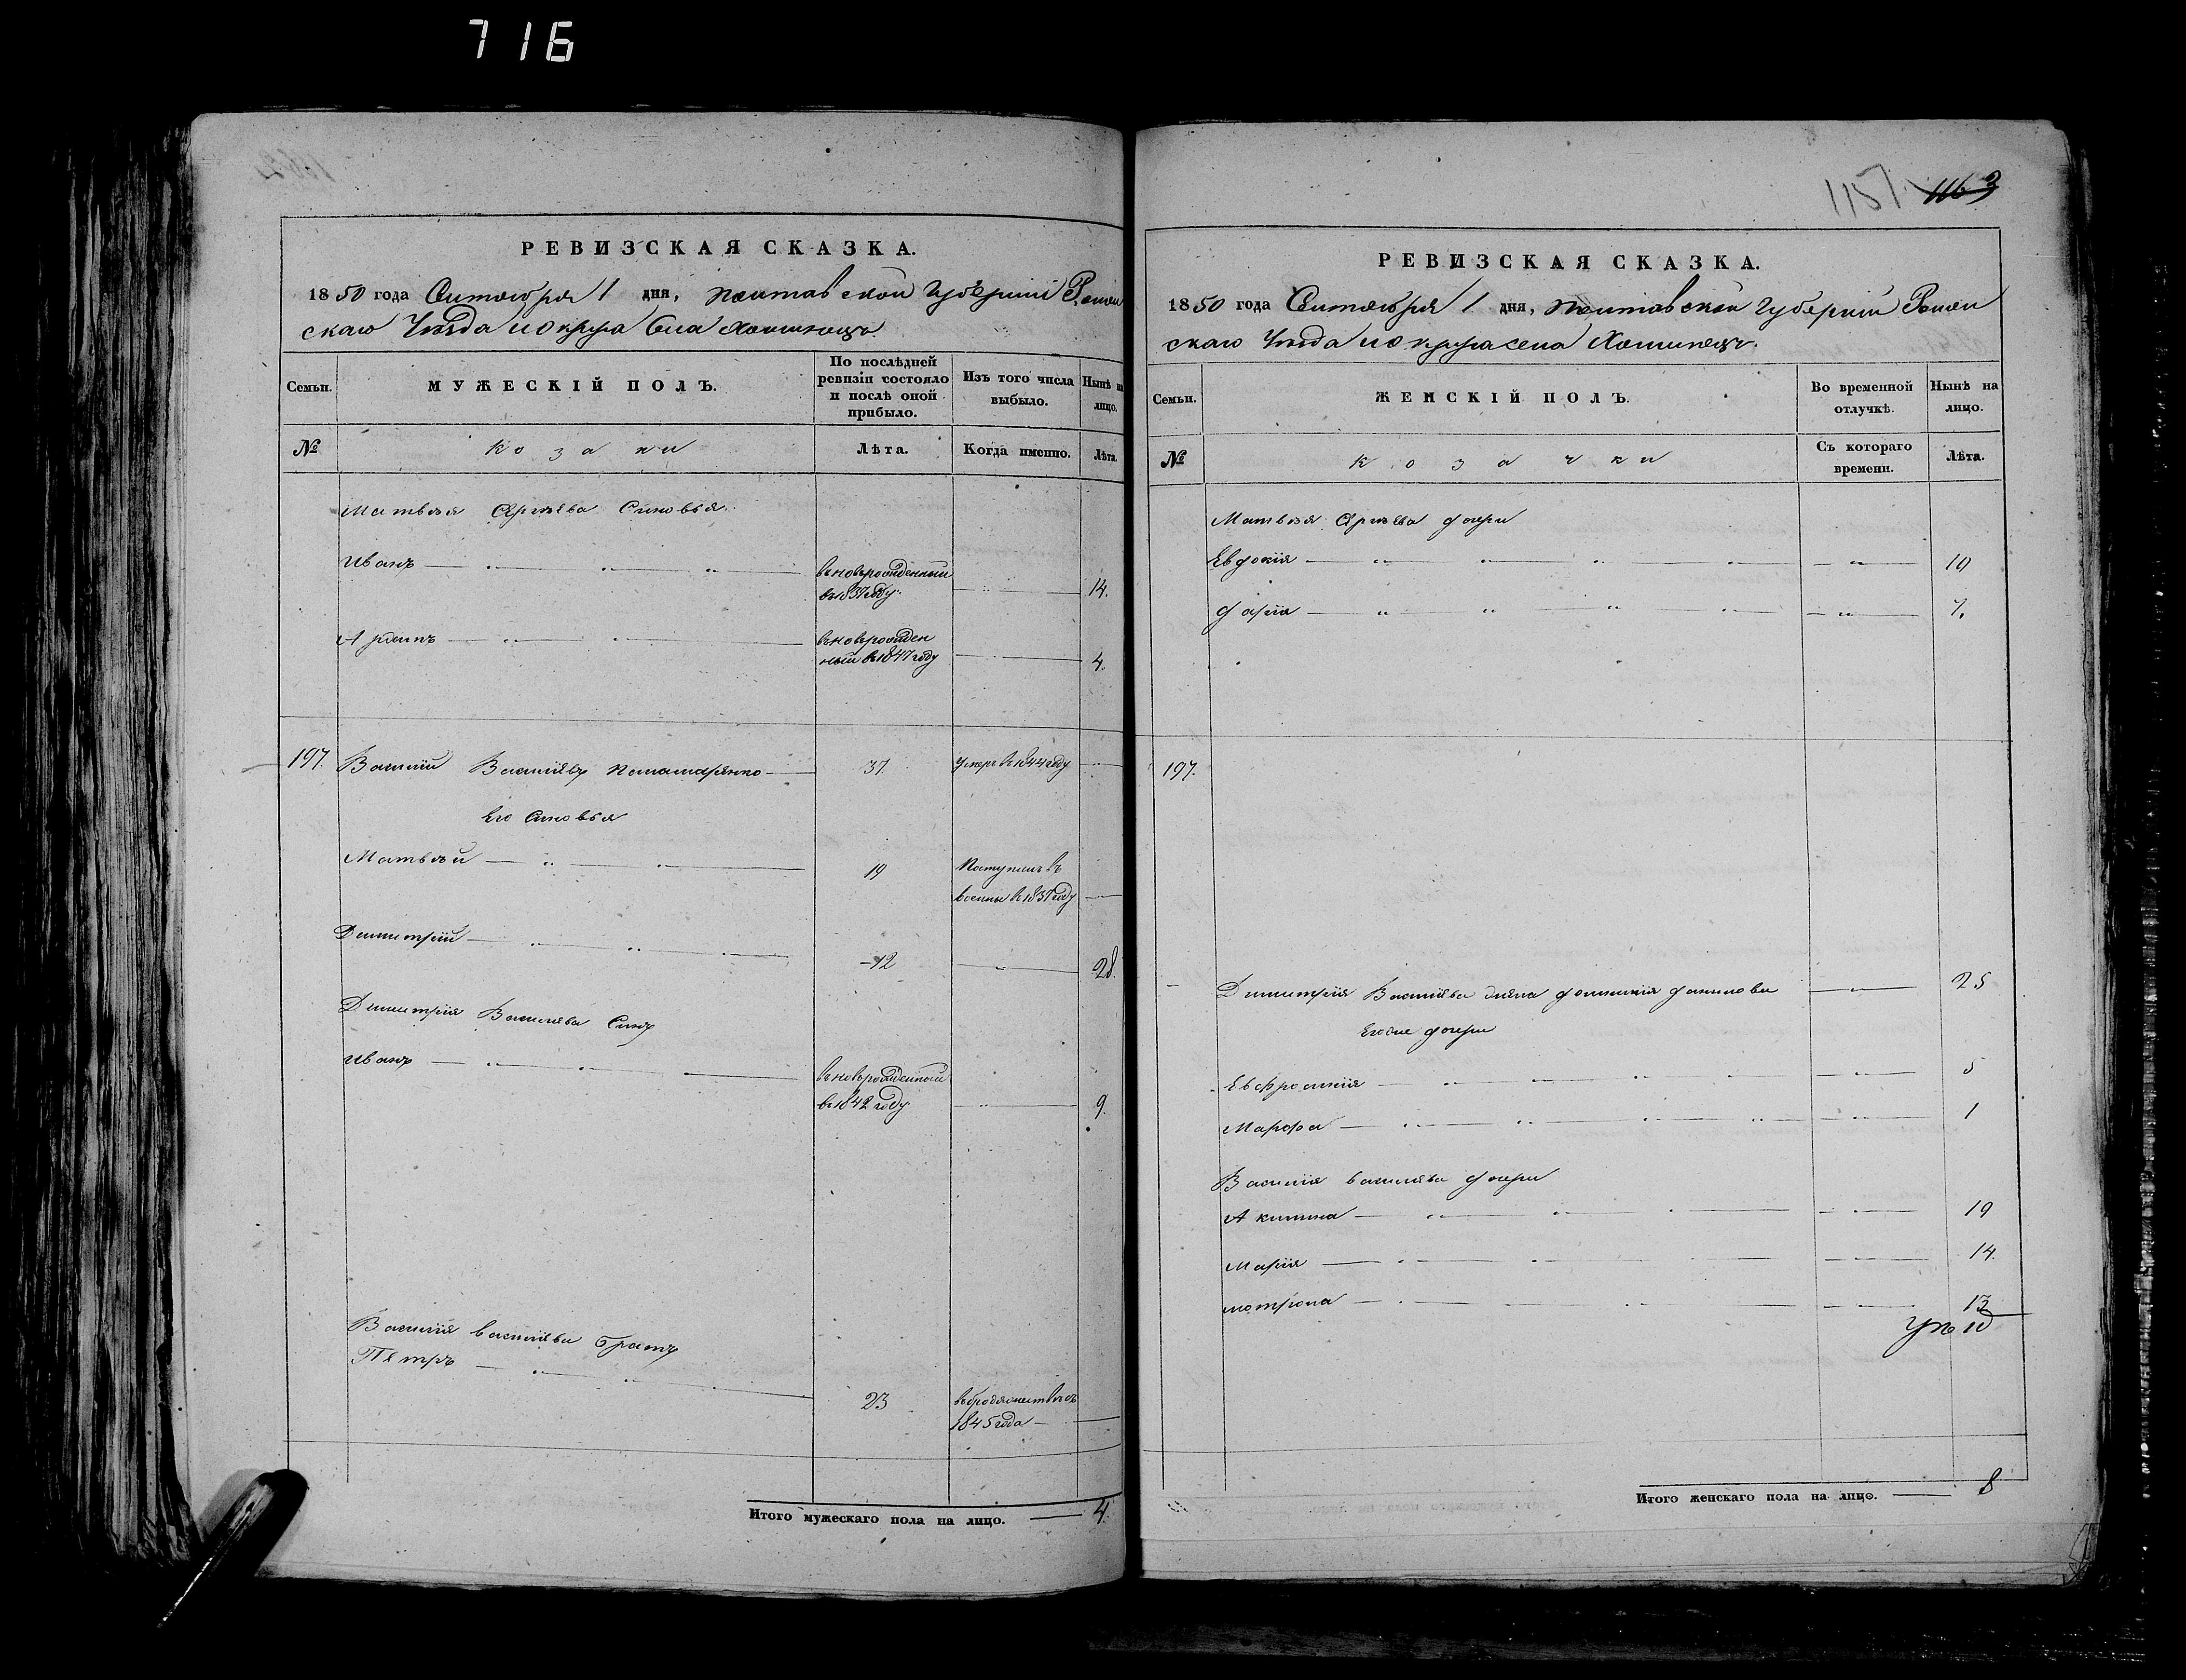 716
РЕВИЗСКАЯ СКАЗКА.
1850 года Сентября 1 дня, Полтавской Губерніи Ромен
скаго Уѣзда и Округа Села
Семьи.
МУЖЕСКІЙ ПОЛЪ.
По послѣдней ревизіи состояло и послѣ оной прибыло.
Изъ того числа выбыло.
Нынѣ на лицо.
№
Козаки
Лѣта.
Когда именно.
Лѣта.
Матвѣя Сергѣева Сыновья
Иванъ
въновьрожденный
въ 1837 году
14.
въновьрожден
ный въ 1847 году
4.
197. Василій Васильевъ Паламаренко 37. умеръ въ 1844 году
Его Сыновья
Матвѣй 19 Поступилъ въ
въ 1837 году
Димитрій 12 28.
Димитрія Васильева Сынъ
Иванъ
въновьрожденный
въ 1842 году 9.
Василія Васильева братъ
Петръ 23 въ бродяжествѣ съ
1845 года
Итого мужескаго пола на лицо. 4.
1157. 1163
РЕВИЗСКАЯ СКАЗКА.
1850 года Сентября 1 дня, Полтавской Губерніи Ромен
скаго Уѣзда и Округа села
Семьи.
ЖЕНСКІЙ ПОЛЪ.
Во временной отлучкѣ.
Нынѣ на лицо.
№
Козачки
Съ котораго времени.
Лѣта.
Матвѣя Сергѣева дочери
Евдокія 10
Дарія 7.
197.
Димитрія Васильева жена Домникія Данилова 25
дочери
Евфросинія 5
Марфа 1
Василія Васильева дочери
Акилина 19
Марія 14.
Мотрона 13
Итого женскаго пола на лицо. 8